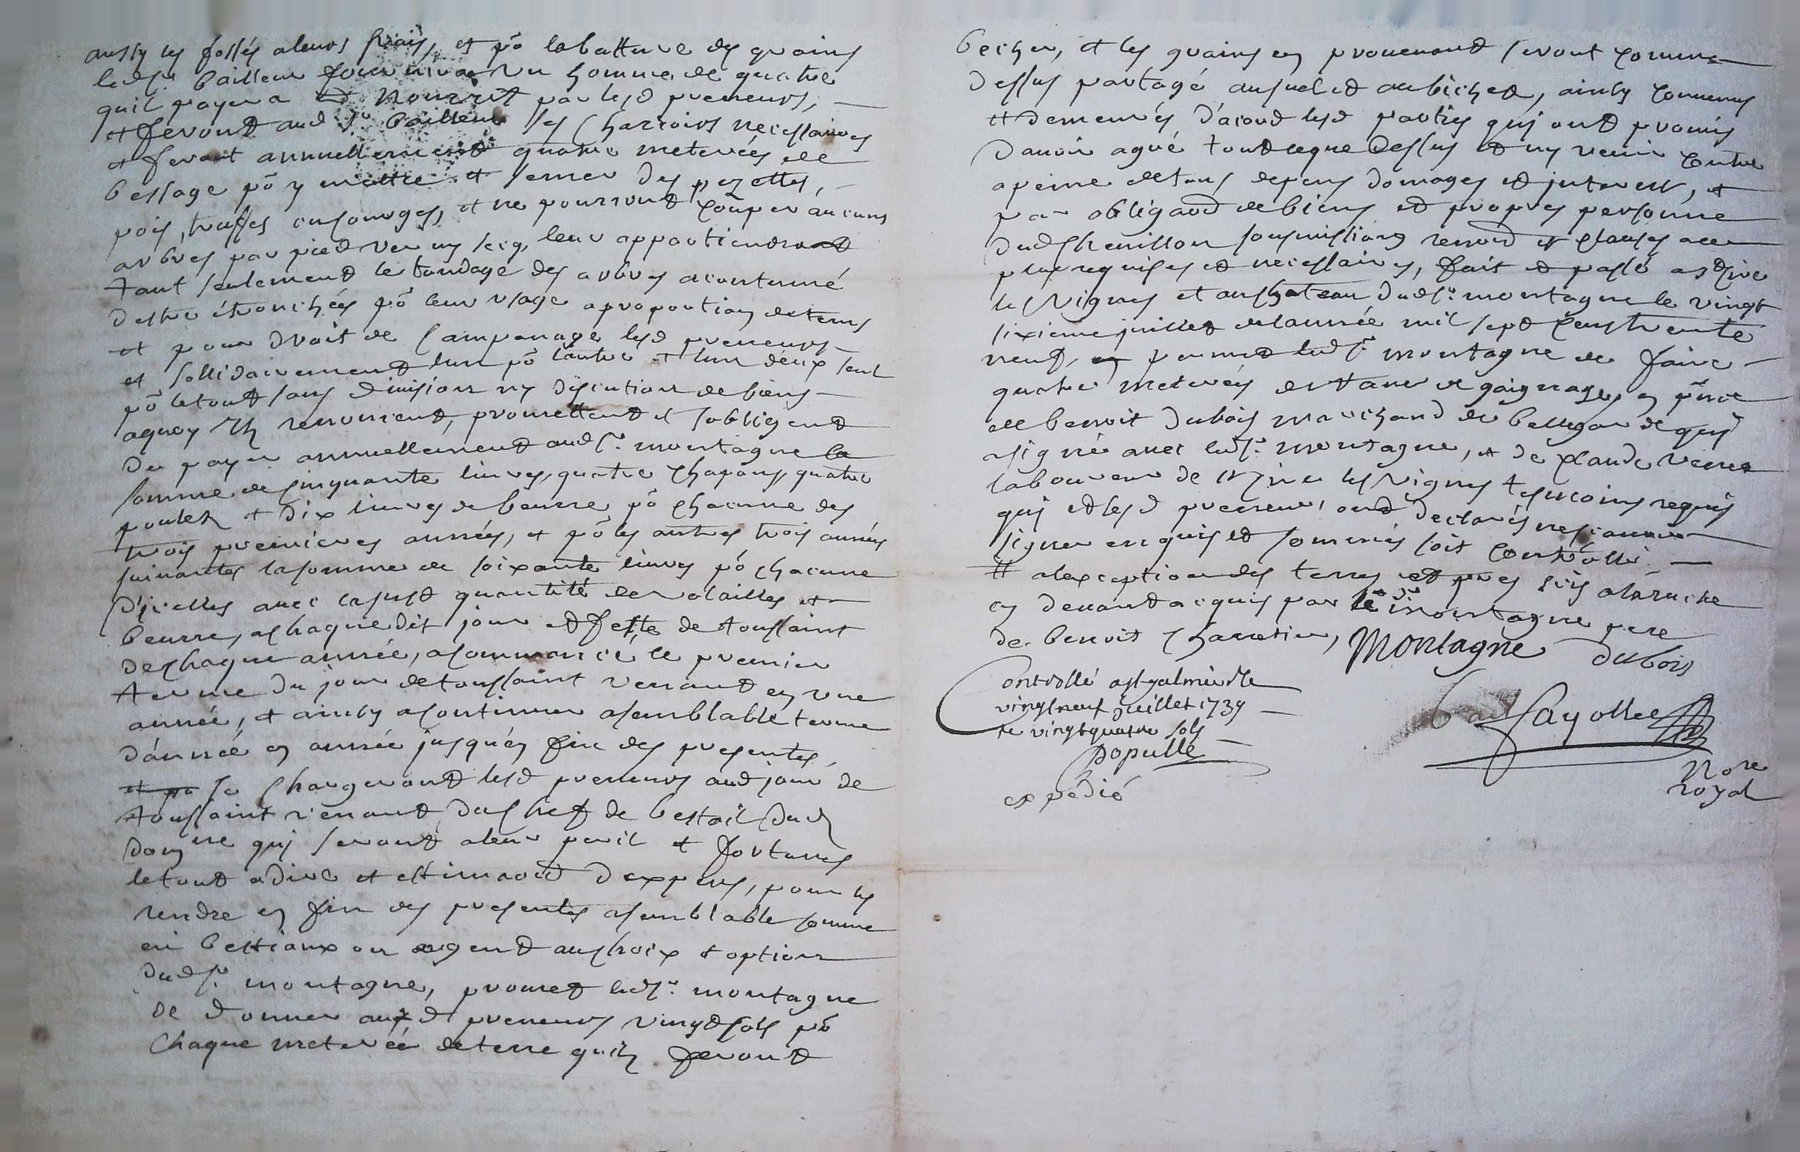 aussy les fossés aleurs frais, et pō la batture des grains
led sr. bailleur fournira un homme de quatre
quil payera et nourrit par lesd preneurs,
et feront aud sr bailleur les charrois necessaires
et feront annuellement quatre meterées de
bessage pō y mettre et semer des pezettes,
pois, truffes ou courges, et ne pourront couper aucuns
arbres par pied ver ny secq, leur appartiendra
tant seulement le tondage des arbres acoutumé
destre étronchées pō leur usage aproportion de tems
et pour droit de campanage lesd preneurs
et sollidairement lun pō lautre et lun deux seul
pō le tout sans division ny discution de biens
aquoy ils renoncent, promettent et sobligent
de payer annuellement aud sr. montagne la
somme de cinquante livres, quatre chapons, quatre
poulets et dix livres de beurre pō chacune des
trois premieres années, et pō les autres trois années
suivantes la somme de soixante livres pō chacune
dicelles avec la susd quantité de volailles et
beurre, a chaque dit jour et feste de toussaint
de chaque année, a commancé le premier
terme du jour de toussaint venant en une
année, et ainsy a continuer a semblable terme
dannée en année jusqu'en fin des presentes
se chargeront lesd preneurs aud jour de
toussaint venant du chef de bestail dud
domne qui seront a leur peril et fortunes
le tout a dire et estimaon d experts, pour les
rendre en fin des presentes a semblable somme
en bestiaux ou argent au choix et option
dud sr. montagne, promet led sr. montagne
de donner auxd preneurs vingt sols pō
chaque meterée de terre quils feront
becher, et les grains en provenant seront comme
dessus partagé au suel et au bichet, ainsy convenus
et demeurés dacord lesd parties qui ont promis
davoir agréé tout ce que dessus et ny venir contre
a peine de tous depens domages et interest, et
par obligaon de biens et propres personne
dud chenillon soumissions renon et clauses a ce
plus requises et necessaires, fait et passé a st Cire
les vignes et au chateau dud sr. montagne le vingt
sixieme juillet de lannée mil sept cens trente
neuf, permet led sr montagne de faire
quatre meterées de gaignage, en pnce
de benoit dubois marchand de bellegarde qui
a signé avec led sr. montagne, et de claude
laboureur de st Cire les vignes tesmoins requis
qui et lesd preneurs ont declarés ne scavoir
signer enquis et sommés soit controllé
# alexception des terres et prés scis alaruche
en devant acquis par le sr montagne pere
de benoit charretier, Montagne dubois
Controllé a st galmier le
vingt neuf juillet 1739
re vingt quatre sols
Populle
expedié
fayolle
Nore
royal